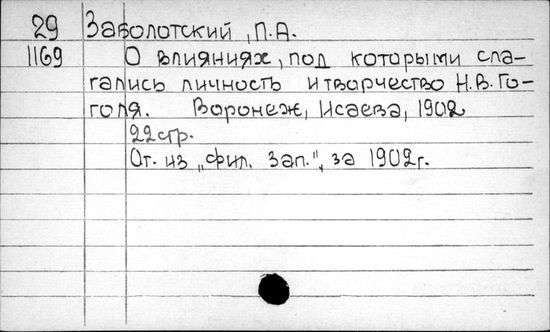 29 Заболотский, П.А.
1169 О влияниях, под которыми сла-
гались личность и творчество Н.В. Го-
голя. Воронеж, Исаева, 1902
22 стр.
От. из „Фил. Зап.", за 1902 г.